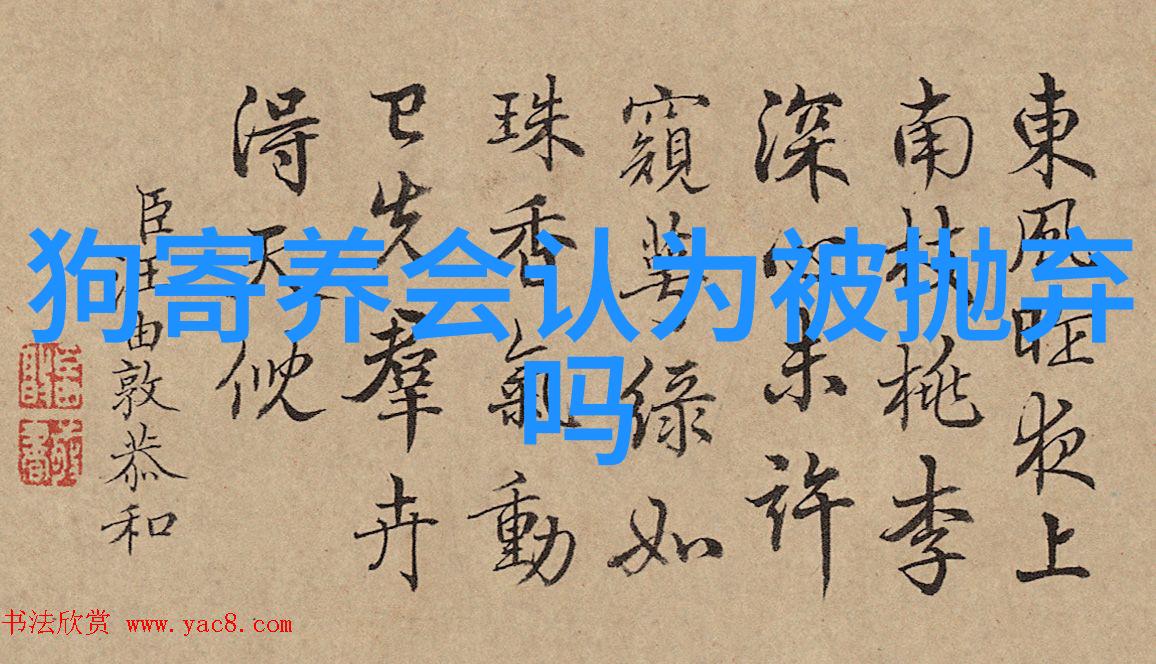 狗寄养会认为被抛弃
吗
東風夜上
南枝桃李
深未許
窺萼綠如
珠香氣動
已先羣卉
得天
臣汪由敦恭和
书法欣赏 www.yac8.com